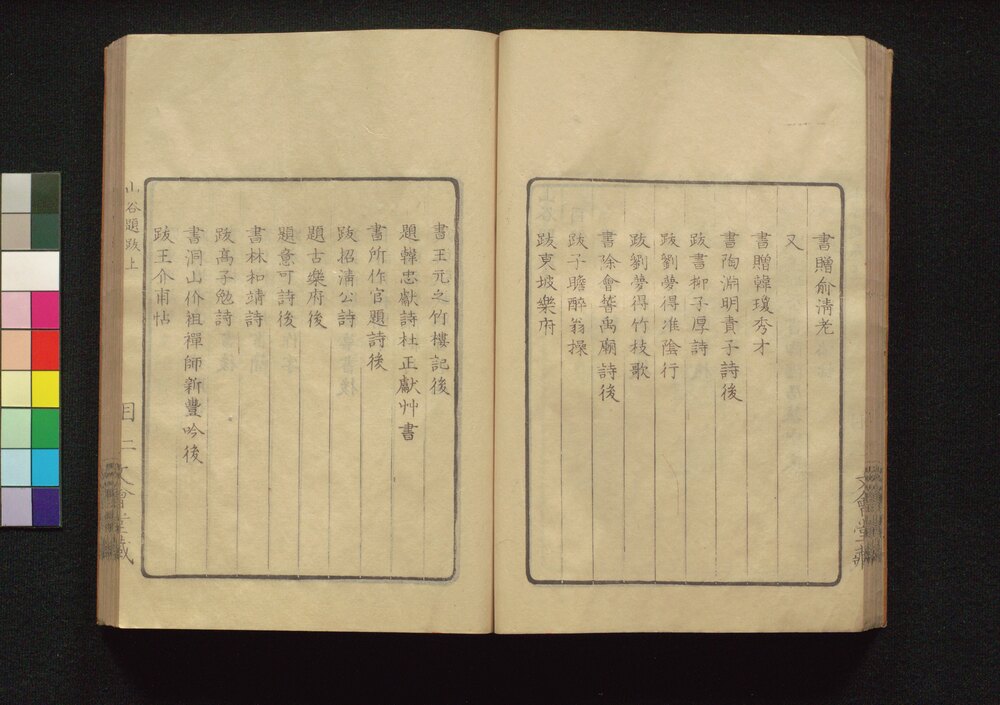 書贈俞清老
又
書贈韓瓊秀才
書陶淵明責子詩後
跋書柳子厚詩
跋劉夢得淮陰行
跋劉夢得竹枝歌
書徐會稽禹廟詩後
跋子瞻醉翁操
跋東坡樂府
書王元之竹樓記後
題韓忠獻詩杜正獻艸書
書所作官題詩後
跋招清公詩
題古樂府後
題意可詩後
書林和靖詩
跋高子勉詩
書洞山价祖禪師新豐吟後
跋王介甫帖
山谷題跋上
目二
文會堂藏
文會堂藏